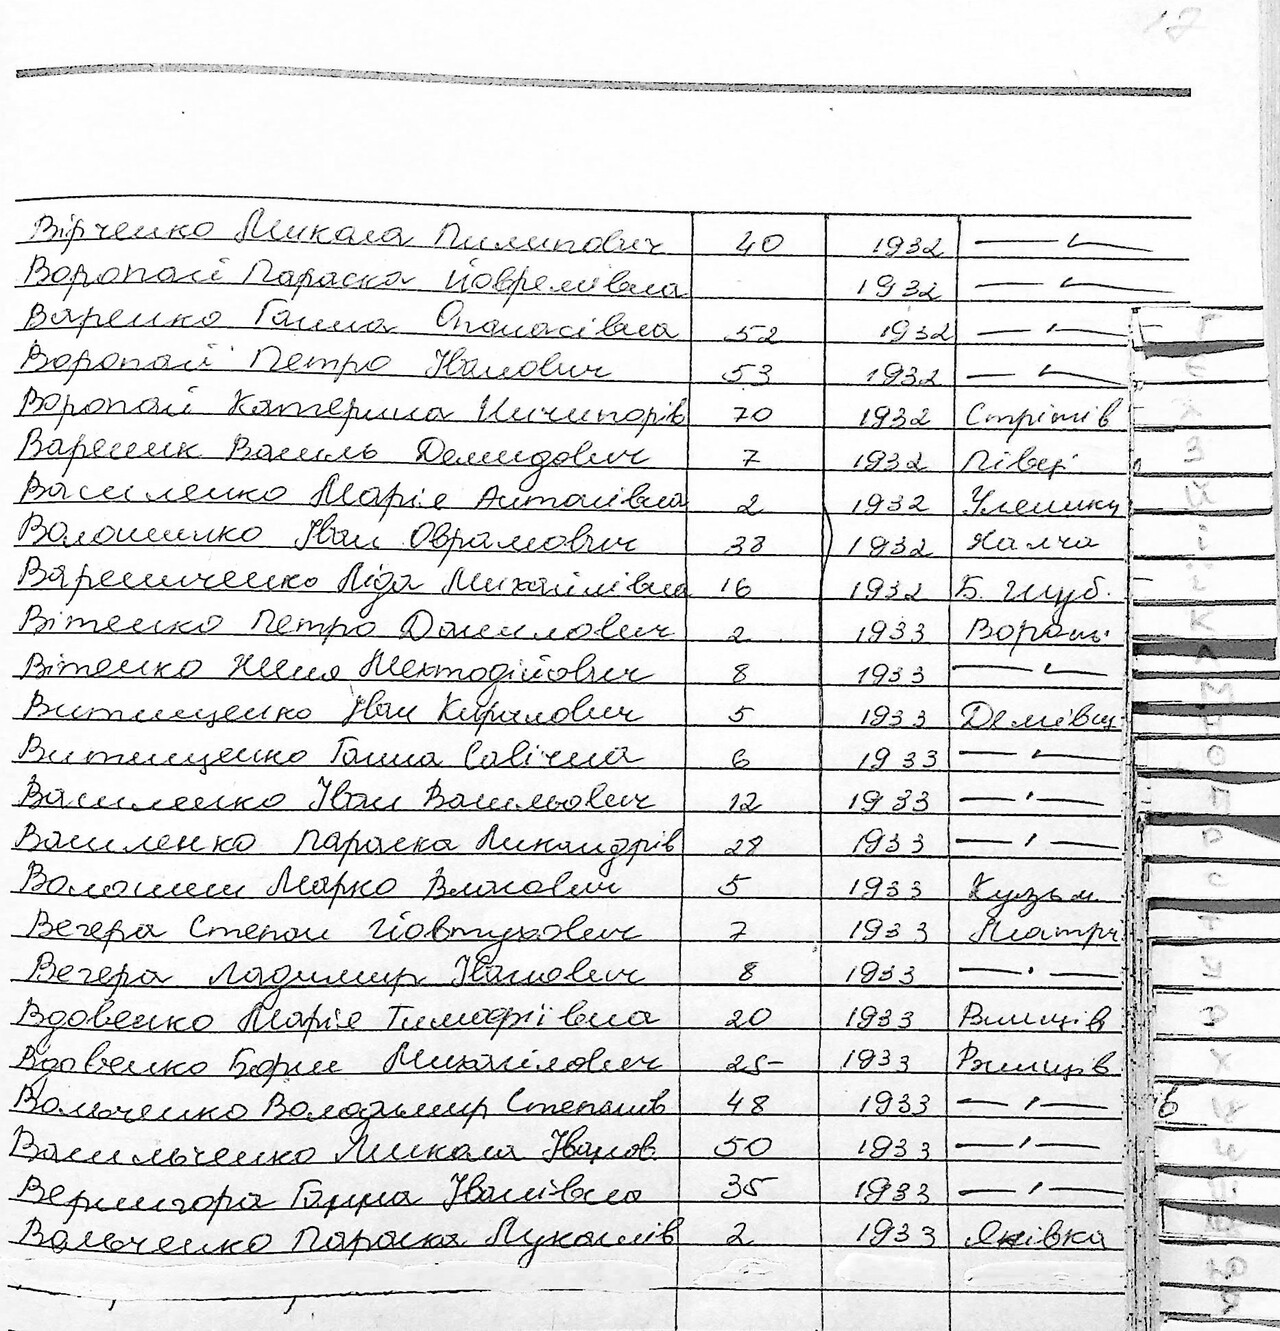 17
Вірченко Микола Пилипович 40 1932 — " —
Воропай Параска Йовремівна 1932 — " —
Варенко Ганна Опанасівна 52 1932 — " —
Воропай Петро Іванович 53 1932 — " —
Воропай Катерина Ничипорів 70 1932 Стрітів
Вареник Василь Демидович 7 1932 Півці
Василенко Марія Антонівна 2 1932 Уляники
Волошенко Іван Оврамович 38 1932 Халча
Варениченко Ліда Михайлівна 16 1932 Б. Шуб.
Вітенко Петро Данилович 2 1933
Вітенко Женя Мектодійович 8 1933 — " —
Витищенко Іван Кирилович 5 1933 Демівщ
Витищенко Ганна Савічна 6 1933 — " —
Василенко Іван Васильович 12 1933 — " —
Василенко Параска Никандрів 28 1933 — " —
Волошин Марко Власович 5 1933 Кузьм.
Вегера Степан Йовтухович 7 1933
Вегера Ладимир Іванович 8 1933 — " —
Вдовенко Марія Тимофіївна 20 1933 Ржищів
Вдовенко Борис Михайлович 25 1933 Ржищів
Вольченко Володимир Степанів 48 1933 — " —
Васильченко Микола Іванов. 50 1933 — " —
Вернигора Ганна Іванівна 35 1933 — " —
Вольченко Параска Лукашів 2 1933 Янівка